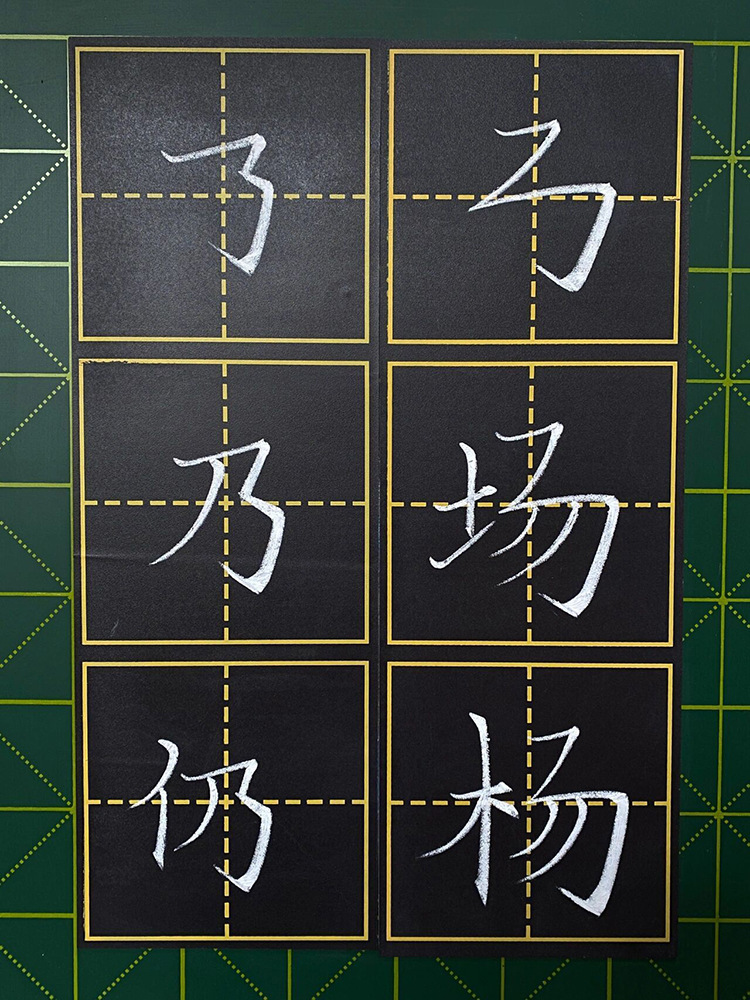 ㇡ ㇡
乃 场
仍 杨